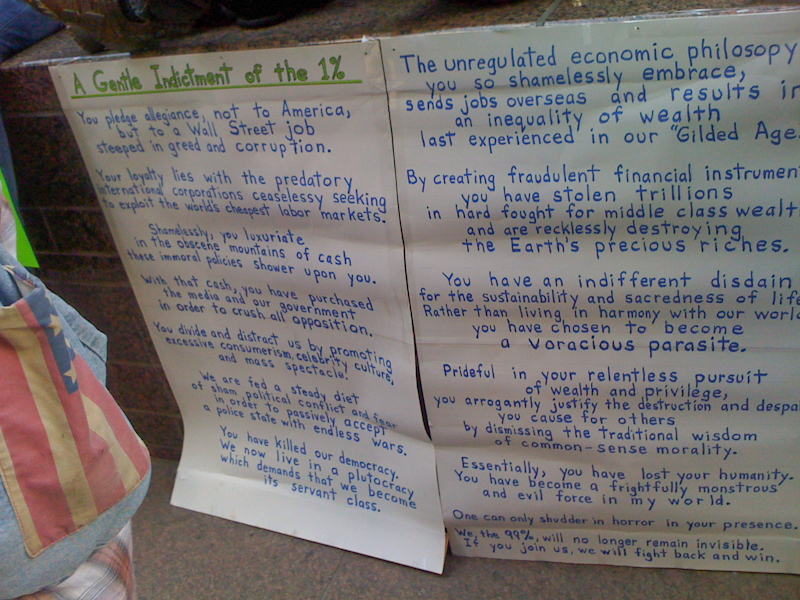 A Gentle Indictment of the 1%
You pledge allegiance, not to America,
but to a Wall Street job
steeped in greed and corruption.
Your loyalty lies with the predatory
international corporations ceaselessly seeking
to exploit the world's cheapest labor markets.
Shamelessly, you luxuriate
in the obscene mountains of cash
these immoral policies shower upon you.
With that cash, you have purchased
the media and our government
in order to crush all opposition.
You divide and distract us by promoting
excessive consumerism, celebrity culture,
and mass spectacle.
We are fed a steady diet
of sham political conflict and fear
in order to passively accept
a police state with endless wars.
You have killed our democracy.
We now live in a plutocracy
which demands that we become
its servant class.
The unregulated economic philosopy
you so shamelessly embrace,
sends jobs overseas and results in
an inequality of wealth
last experienced in our "Gilded Age.
By creating fraudulent financial instrumen
you have stolen trillions
in hard fought for middle class wealt
and are recklessly destroying
the Earth's precious riches.
You have an indifferent disdain
for the sustainability and sacredness of life
Rather than living in harmony with our world
you have chosen to become
a voracious parasite.
Prideful in your relentless pursuit
of wealth and privilege,
you arrogantly justify the destruction and despa
you cause for others
by dismissing the Traditional wisdom
of common-sense morality.
Essentially, you have lost your humanity.
You have become a frightfully monstrous
and evil force in my world.
One can only shudder in horror in your presence.
We, the 99%, will no longer remain invisible.
If you join us, we will fight back and win.